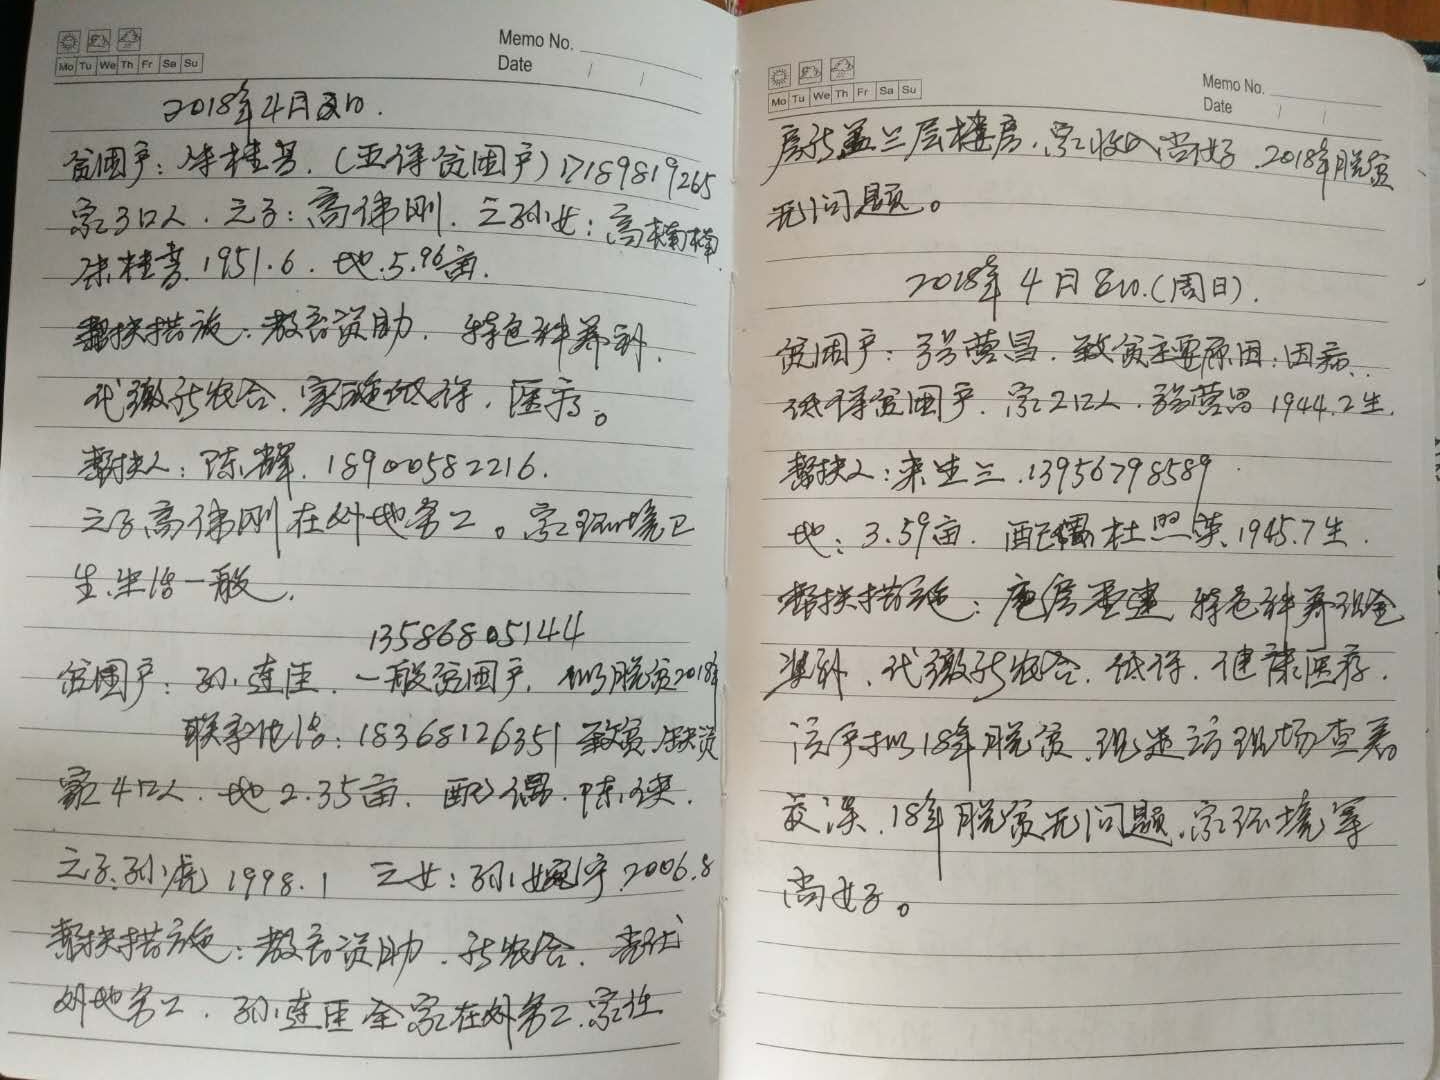 Memo No.
Date
Mo Tu We Th Fr Sa Su
2018年4月日.
贫困户：桂.(五保贫困户)17189819265
家3口人.之子：高伟刚.之孙女：高楠楠.
桂.1951.6.地.5.96亩.
帮扶措施：教育资助.特色种养补.
代缴新农合.实施低保.医疗。
帮扶人：陈辉.18900582216.
之子高伟刚在外地务工。家环境卫
生.生活一般.
13586805144
贫困户：孙连.一般贫困户.拟脱贫2018年
联系电话：18368126351 致贫.缺资
家4口人.地2.35亩.配偶.陈侠.
之子：孙虎 1998.1 之女：孙婉 2006.8
帮扶措施：教育资助.新农合.
外地务工.孙连全家在外务工.家住
Memo No.
Date
Mo Tu We Th Fr Sa Su
房新盖三层楼房.家收入尚好.2018年脱贫
无问题。
2018年4月8日.(周日).
贫困户：张营昌.致贫主要原因：因病.
低保贫困户.家2口人.张营昌 1944.2生.
帮扶人：来生兰.13956798589
地：3.59亩.配偶杜照英.1945.7生.
帮扶措施：危房重建.特色种养现金
奖补.代缴新农合.低保.健康医疗.
该户拟18年脱贫.现走访现场查看
较深.18年脱贫无问题.家环境等
尚好。